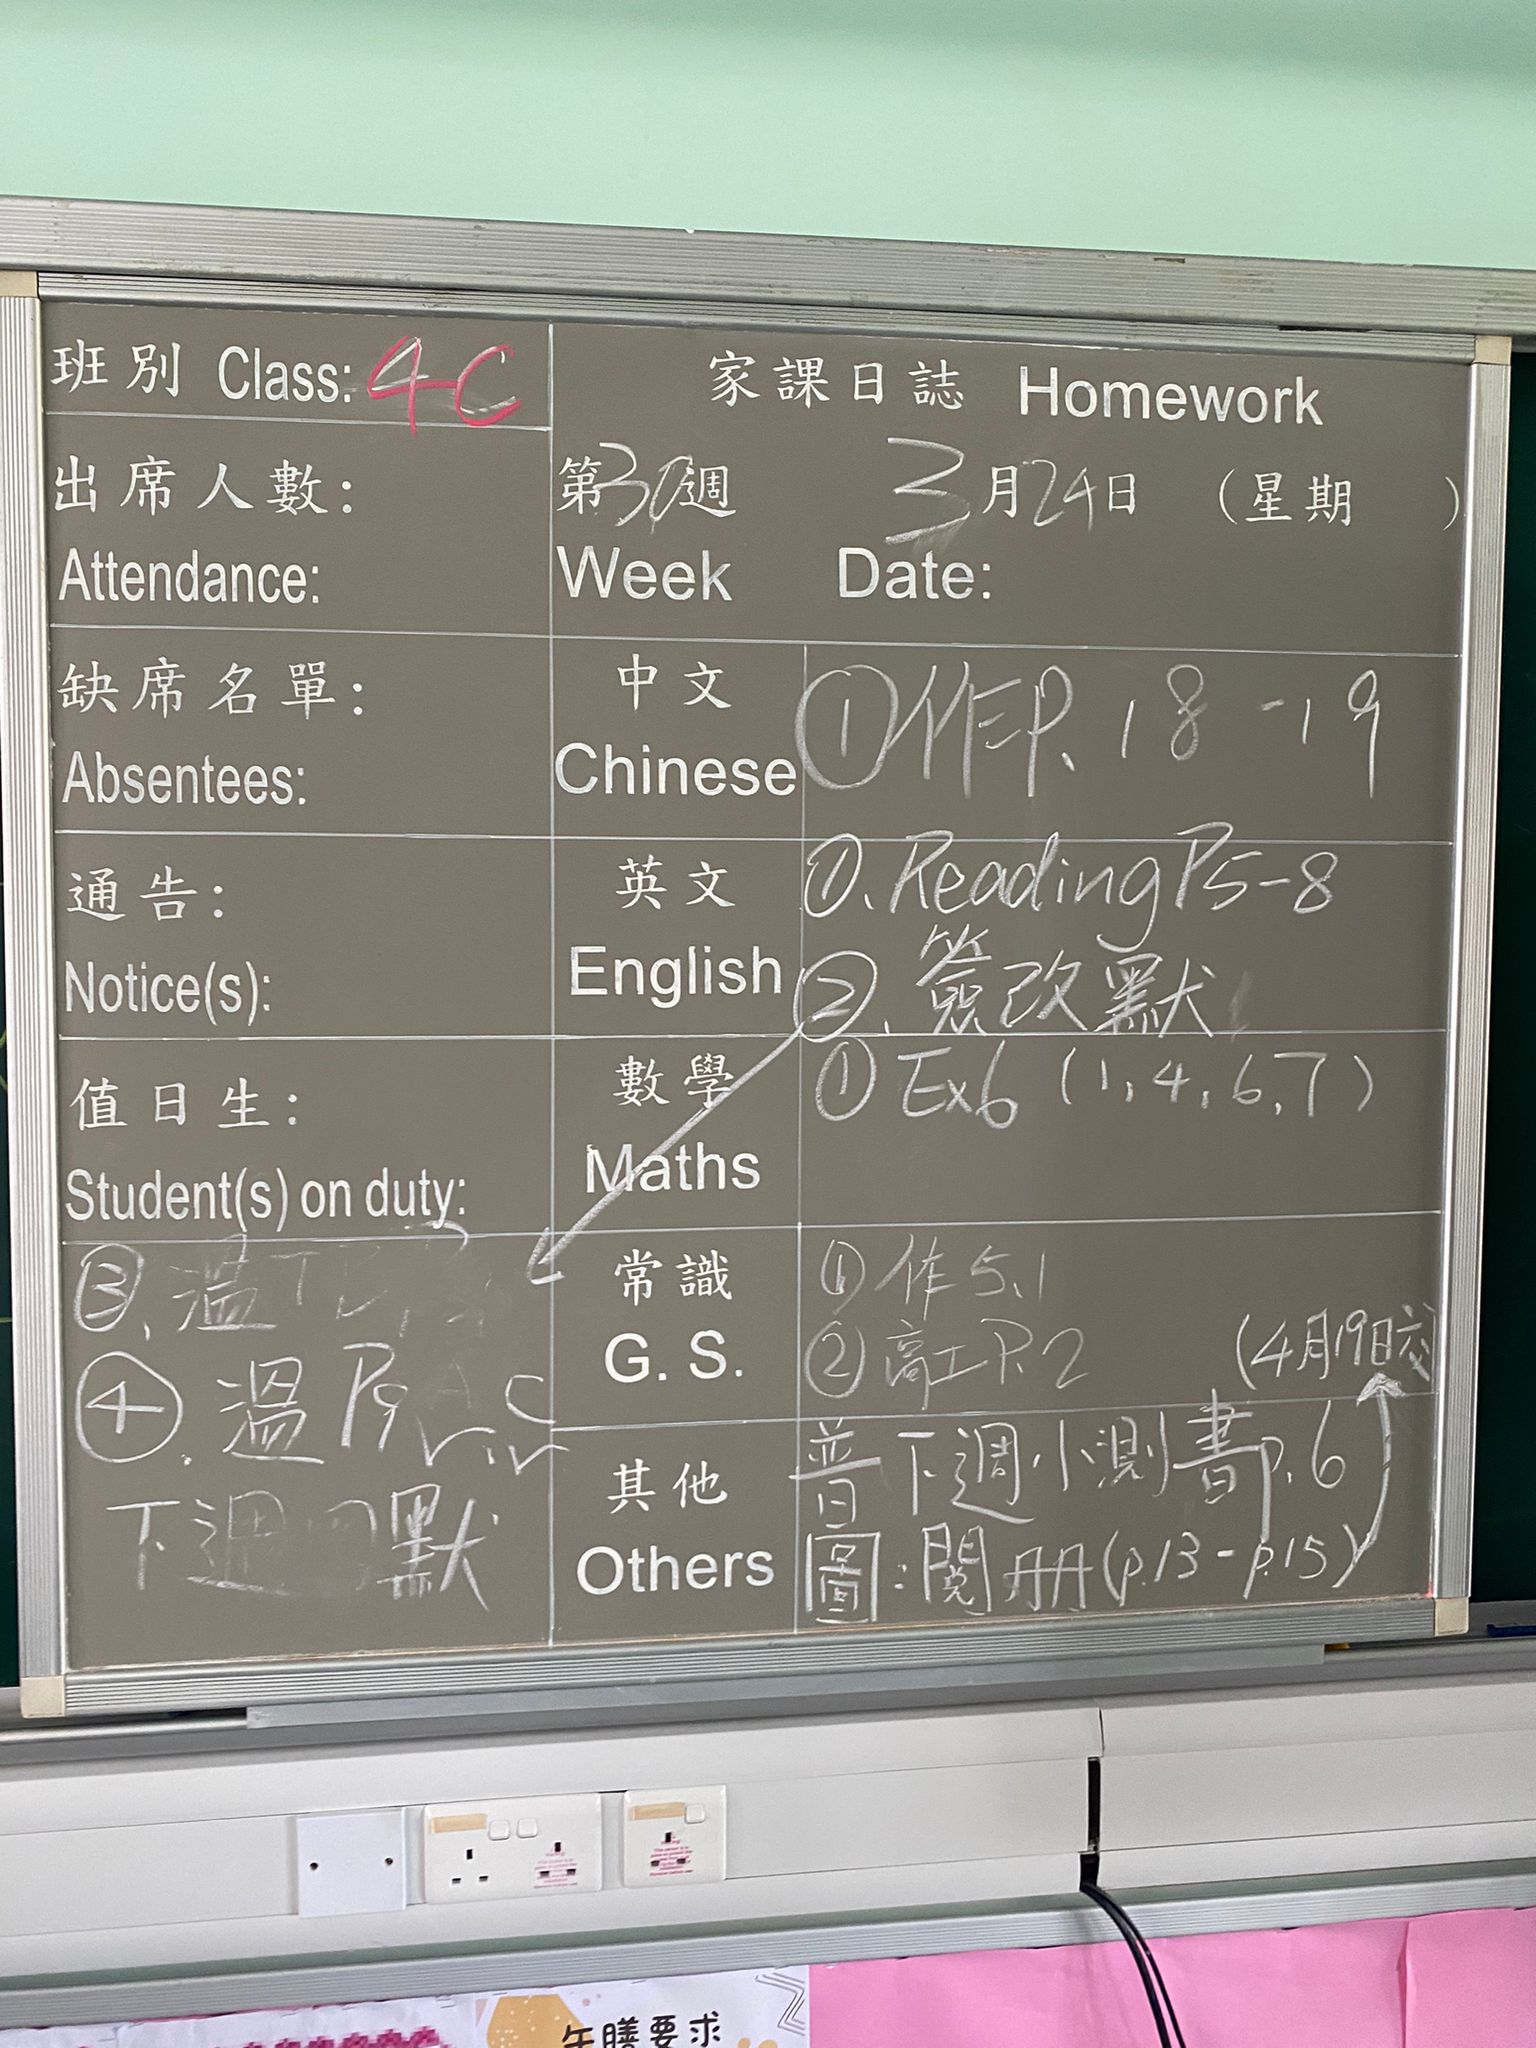 班別 Class: 4C
家課日誌 Homework
出席人數:
Attendance:
第30週 3月24日 (星期 )
Week Date:
缺席名單:
Absentees:
中文
Chinese
① 作P. 18-19
通告:
Notice(s):
英文
English
①. Reading P5-8
②. 簽改默
值日生:
Student(s) on duty:
數學
Maths
① Ex6 (1, 4, 6, 7)
③. 溫
④. 溫 P9
下週 默
常識
G. S.
① 作 5.1
② 高工 P.2
(4月19日交)
其他
Others
普 下週小測 書p. 6
圖: 閱冊 (p.13 - p.15)
午膳要求